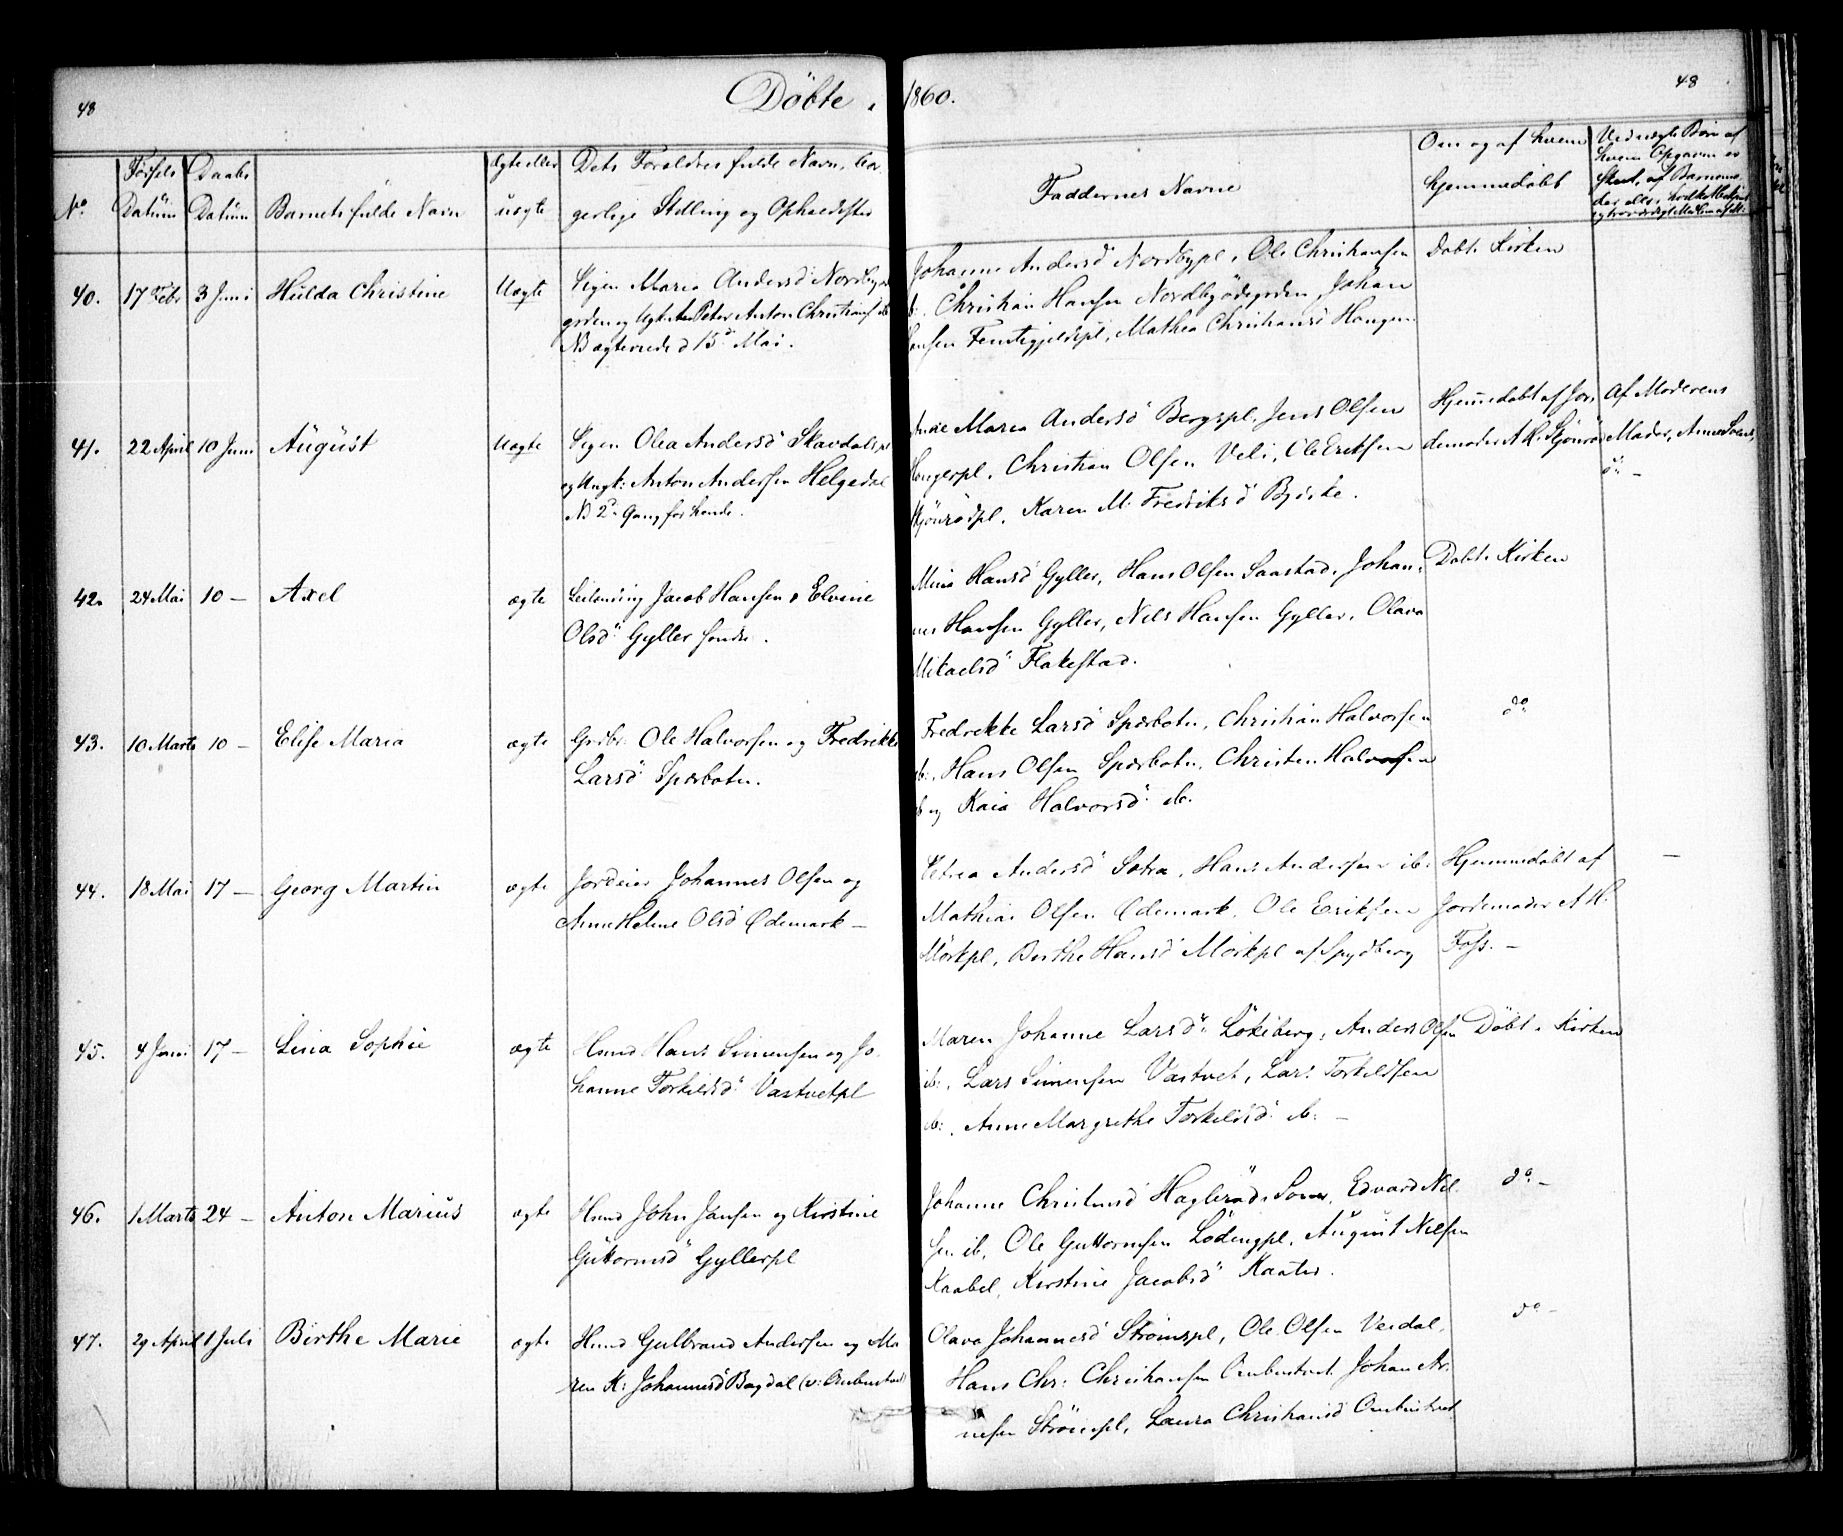 48
Döbte i 1860.
48
No
Fødsels Datum
Daabs Datum
Barnets fulde Navn
Ægte eller uægte
Dets Forældres fulde Navn, bor-
gerlige Stilling og Opholdssted
Faddernes Navne
Om og af hvem
hjemmedöbt
Ved uægte Børn af
hvem Opgaven er
skeet, af Barnemo-
40. 17 Febr 3 Juni Hulda Christine Uægte Pigen Maren Andersd Nordbyøde-
gorden og Ugk. Peter Anton Christians ib
NB ægteviede d 15de Mai.
Johanne Andersd Nordbypl, Ole Christiansen
ib:, Christian Hansen Nordbyødegorden, Johan
Hansen Fenstigjeldspl, Mathea Christiansd Haugen.
Döbt i Kirken
41. 22 April 10 Juni August Uægte Pigen Olea Andersd Skavdalspl
og Ungk: Anton Andersen Helgedal
NB 2den Gang for hende.
Maria Andersd Bergspl, Jens Olsen
Haugerpl, Christian Olsen Veli, Ole Eriksen
Skjönrödpl, Karen M: Fredriksd Bjerke.
Hjemmedöbt af Jor-
demoder A K. Skjönrö
Af Moderens
Moder, Anne
42. 24 Mai 10 — Axel ægte Leilending Jacob Hansen & Elvine
Olsd Gyller söndre.
Mina Hansd Gyller, Hans Olsen Saastad, Johan-
nes Hansen Gyller, Nils Hansen Gyller, Olava
Mikaelsd Flakestad.
Döbt i Kirken
43. 10 Marts 10 — Elise Maria ægte Grdbr: Ole Halvorsen og Fredrikke
Larsd Spærboten.
Fredrekke Larsd Spærboten, Christian Halvorsen
ib:, Hans Olsen Spærboten, Christen Halvorsen
ib og Kaia Halvorsd ib.
do
44. 18 Mai 17 — Georg Martin ægte Jordeier Johannes Olsen og
Anne Helene Olsd Ødemark —
Petrea Andersd Sotra, Hans Andersen ib:
Mathias Olsen Ødemark, Ole Eriksen
Mörkpl, Berthe Hansd Mörkpl af Spydberg
Hjemmedöbt af
Jordemoder A H.
Foss. —
—
45. 4 Juni 17 — Lina Sophie ægte Husmd Hans Simensen og Jo-
hanne Torkildsd: Vastvetpl
Maren Johanne Larsd: Lökeberg, Anders Olsen
ib:, Lars Simensen Vastvet, Lars Torkildsen
ib:, Anne Margrethe Torkildsd ib: —
Döbt i Kirken
46. 1 Marts 24 — Anton Marius ægte Husmd John Jansen og Kirstine
Guttormsd Gyllerpl
Johanne Edvard Niel-
sen ib, Ole Guttormsen Lödengpl, August Nilsen
Kaabel, Kirstine Jacobsd Kaater.
do —
47. 29 April 1 Juli Birthe Marie ægte Husmd Gulbrand Andersen og Ma-
ren K: Johannesd Bagdal
Olava Johannesd Strömspl, Ole Olsen Vardal,
Hans Chr: Christiansen Johan Ar-
nesen Strömspl, Laura Christiansd
do —